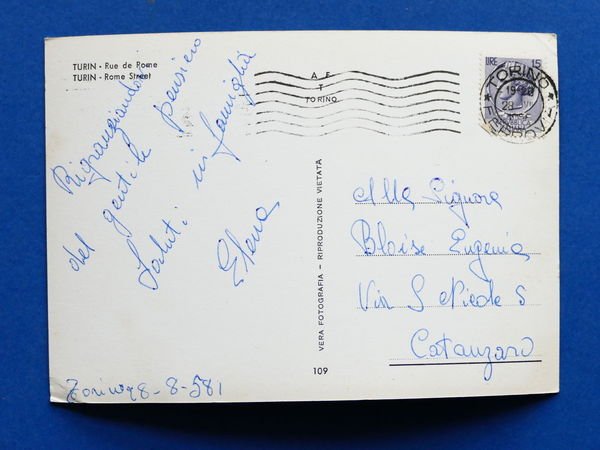 TURIN - Rue de Rome
TURIN - Rome Street
Ringraziando
del gentile pensiero
Saluti in famiglia
Elena
Torino 28-8-581
109
VERA FOTOGRAFIA - RIPRODUZIONE VIETATA
A F
T
TORINO
LIRE 15
TORINO
19-20
FERROVIA
Alla Signora
Bloise Eugenia
Via S Nicola 5
Catanzaro